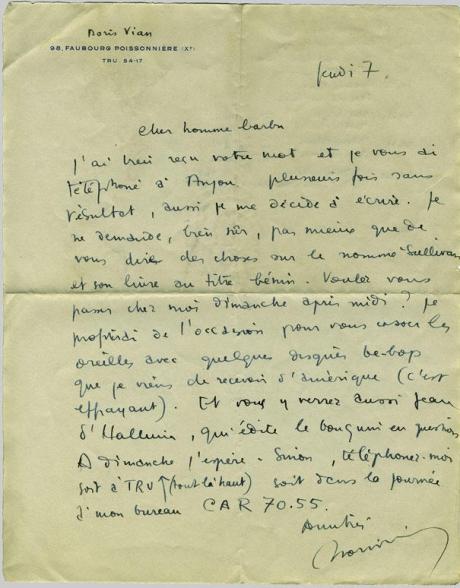 Boris Vian
98, FAUBOURG POISSONNIÈRE (Xe)
TRU. 54-17
Jeudi 7.
Cher homme barbu
J'ai bien reçu votre mot et je vous ai
téléphoné à Anjou plusieurs fois sans
résultat, aussi je me décide à écrire. Je
ne demande, bien sûr, pas mieux que de
vous dire des choses sur le nommé Sullivan
et son livre au titre bénin. Voulez vous
passer chez moi dimanche après midi ? Je
profiterai de l'occasion pour vous casser les
oreilles avec quelques disques be-bop
que je viens de recevoir d'amérique (c'est
effrayant). Et vous y verrez aussi Jean
d'Halluin, qui édite le bouquin en question
A dimanche j'espère. Sinon, téléphonez-moi
soit à TRU ↑ (tout là haut) soit dans la journée
à mon bureau CAR 70.55.
Amitiés